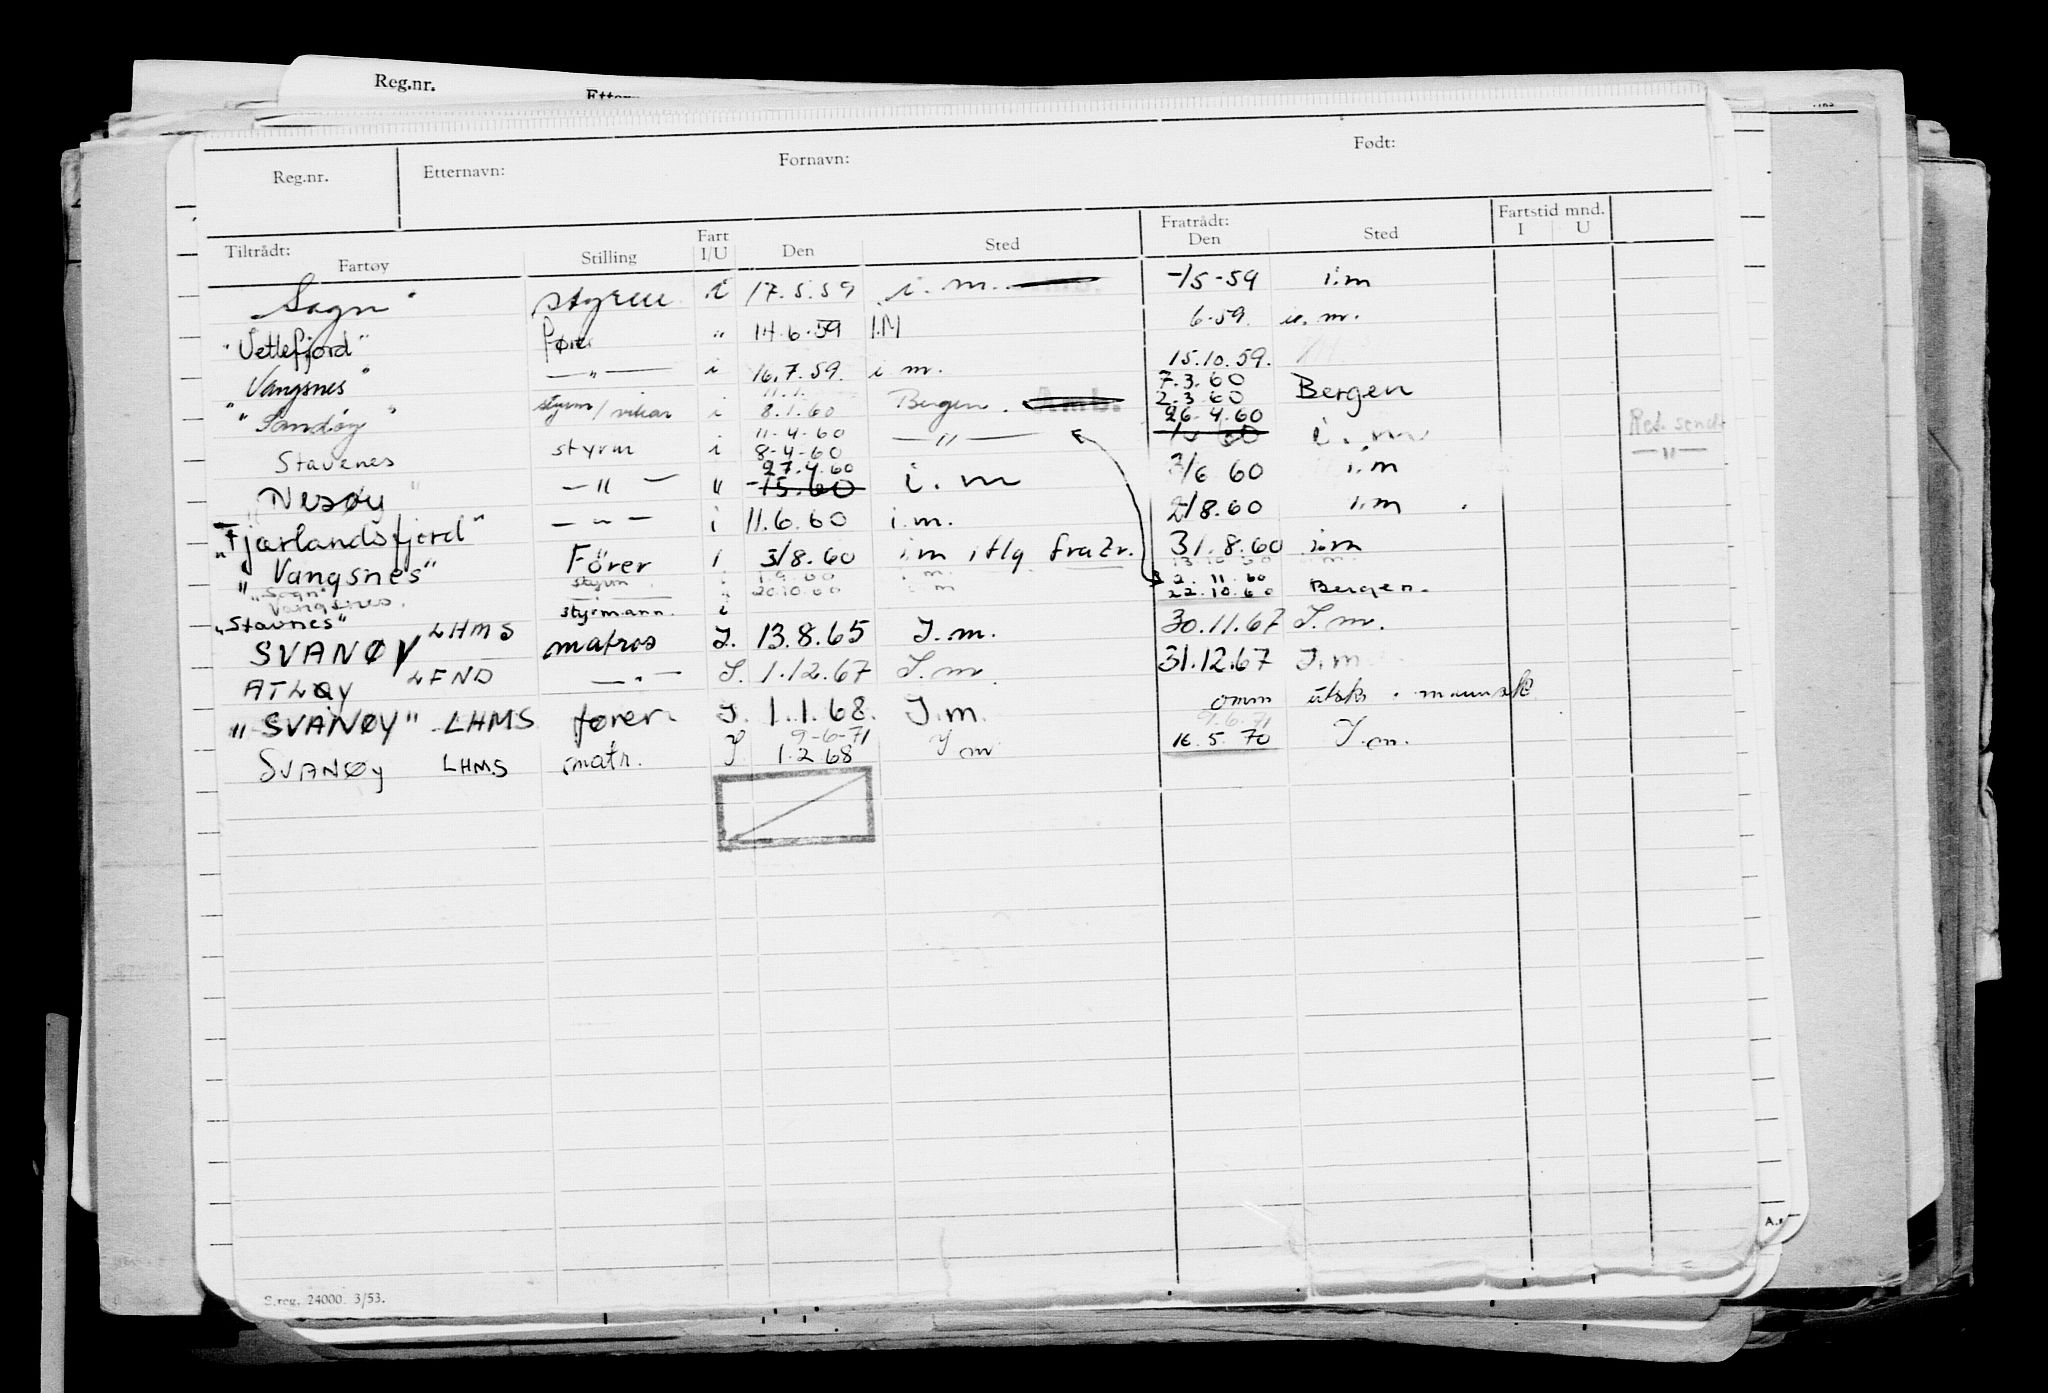 Reg.nr.
Reg.nr. Etternavn: Fornavn: Født:
Tiltrådt: Fratrådt: Fartstid mnd.
Fartøy Stilling Fart I/U Den Sted Den Sted I U
Sogn" i 17.5.59 i.m. -/5-59 i.m
"Vetlefjord" fører " 14.6.59 I.M 6-59. i.m.
Vangsnes" —"— i 16.7.59. i m. 15.10.59.
"Sandøy" styrm/vikar i 8.1.60 Bergen. 7.3.60 2.3.60 Bergen
11-4-60 26.4.60
Stavenes styrm i 8-4-60 —"— i.m Ret. sendt
27.4.60 —"—
"Nesøy" —"— " -/5.60 i.m 3/6 60 i.m
"Fjærlandsfjord" —"— i 11.6.60 i.m. 2/8.60 i.m.
"Vangsnes" Förer i 3/8.60 i m iflg. fra Zr. 31.8.60 i.m
"Sogn" styrm. i 1.9.60 i m.
Vangsnes. " 20.10.60 i m 2.11.60
"Stavnes" styrmann. i 22.10.60 Bergen.
SVANØY LHMS matros I. 13.8.65 I.m. 30.11.67 I.m.
ATLØY LFND —"— I. 1.12.67 I.m. 31.12.67 I.m
"SVANØY" LHMS fører I. 1.1.68. I.m. omm utsk. mannsk
9-6-71 9.6.71
SVANØY LHMS matr. I. 1.2.68 I m 16.5.70 I.m.
S.reg. 24000. 3/53.